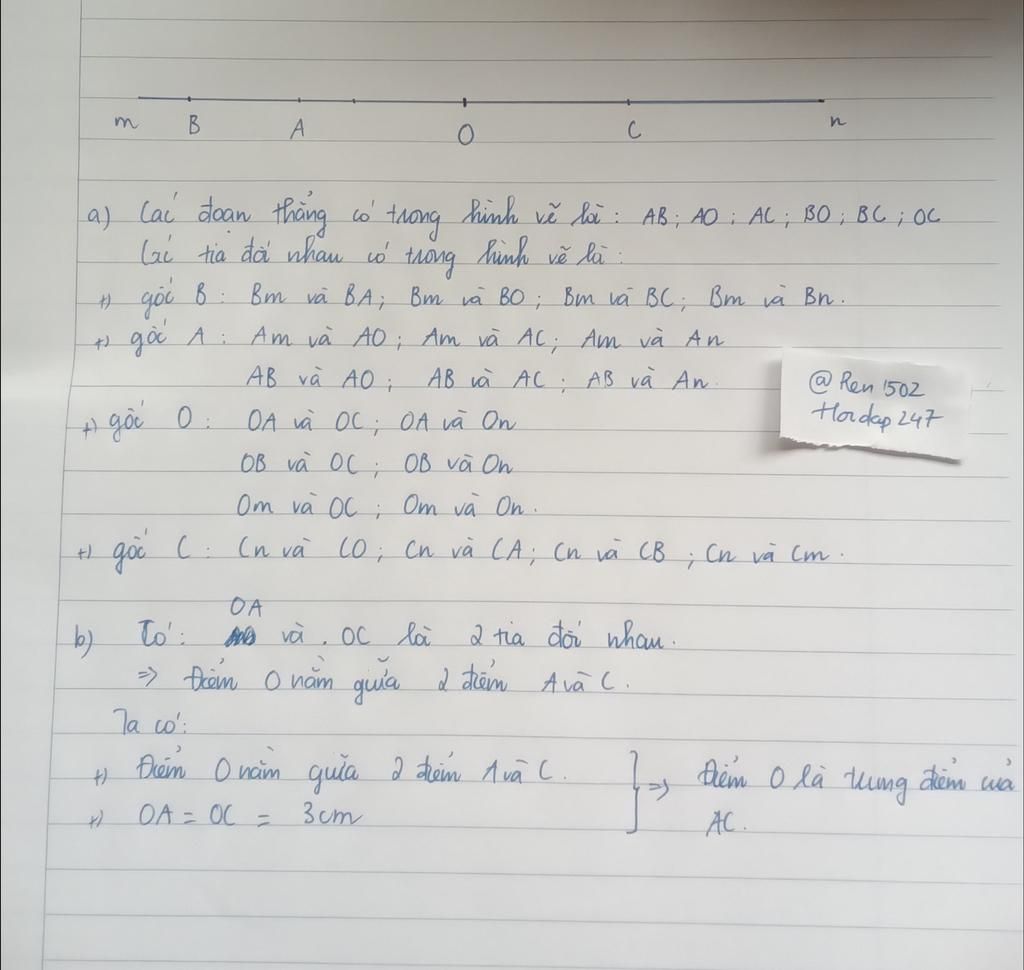 m B A O C n
a) Các đoạn thẳng có trong hình vẽ là : AB ; AO ; AC ; BO ; BC ; OC
Các tia đối nhau có trong hình vẽ là :
+) gốc B : Bm và BA ; Bm và BO ; Bm và BC ; Bm và Bn .
+) gốc A : Am và AO ; Am và AC ; Am và An
AB và AO ; AB và AC ; AB và An .
@Ren1502
Hoidap247
+) gốc O : OA và OC ; OA và On
OB và OC ; OB và On
Om và OC ; Om và On .
+) gốc C : Cn và CO ; Cn và CA ; Cn và CB ; Cn và Cm .
OA
b) Có : và . OC là 2 tia đối nhau .
=> Điểm O nằm giữa 2 điểm A và C .
Ta có :
+) Điểm O nằm giữa 2 điểm A và C .
+) OA = OC = 3cm
=> Điểm O là trung điểm của
AC .